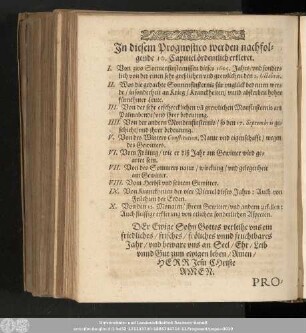 In diesem Prognostico werden nachfol-
gende 10. Capittel ordentlich erkleret.
I. Von zwo Sonnenfinsternissen dieses Jahrs/ und sonder-
lich von der einen sehr grossen und grewlichen den 2. Octobris.
II. Was die gedachte Sonnenfinsternis für ungluck bedeuten wer-
de/ insonderheit an Krieg/ Kranckheiten/ und absterben hoher
fürnehmer Leute.
III. Von der sehr erschrecklichen und grewlichen Mondfinsternis am
Palmabend/ und ihrer bedeutung.
IIII. Von der andern Mondenfinsternis/ so den Septembris
geschicht/ und ihrer bedeutung.
V. Von des Winters Constitution, Natur und eigenschafft/ wegen
des Gewitters.
VI. Vom Früling/ wie er diß Jahr am Gewitter wird ge-
artet sein.
VII. Von des Sommers natur/ wirckung/ und gelegenheit
am Gewitter.
VIII. Vom Herbst und seinem Gewitter.
IX. Von den vier Jahren: Auch von
Früchten der Erden.
X. Von den 12. Monaten/ ihrem Gewitter/ und andern zufellen:
Auch von etlichen sonderlichen Aspecten.
DEr Ewige Sohn Gottes verleihe uns ein
friedliches/ frisches/ fröliches unnd fruchtbares
Jahr/ und beware uns an Seel/ Ehr/ Leib
unnd Gut zum ewigen leben/ Amen/
HERR Jesu CHriste
AMEN.
PRO-